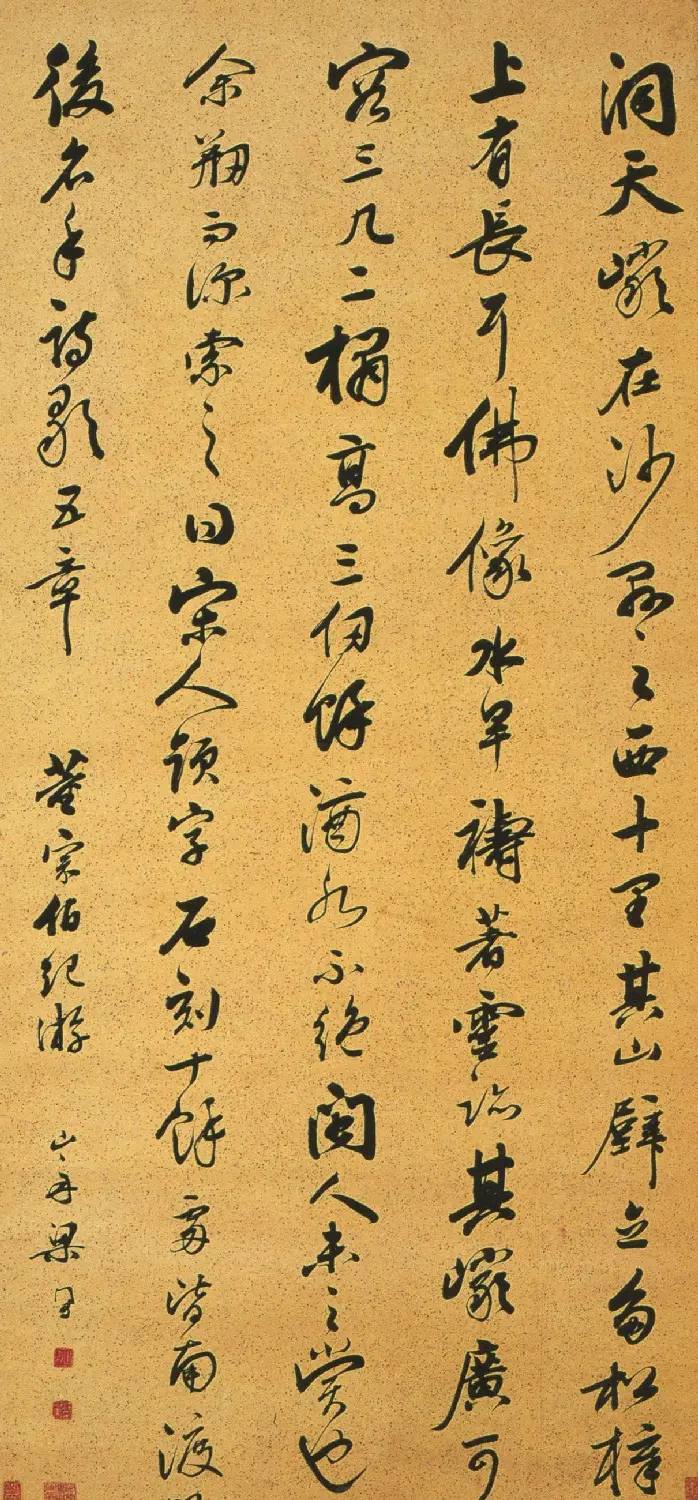 洞天巖在沙縣之西十里其山壁立多松樟
上有長耳佛像水旱禱著靈跡其巖廣可
容三几二榻高三仞餘滴水不絕閩人未之賞也
余剏而深索之曰宋人題字石刻十餘處皆南渡
後名手詩歌五章 董宗伯紀遊 山舟梁